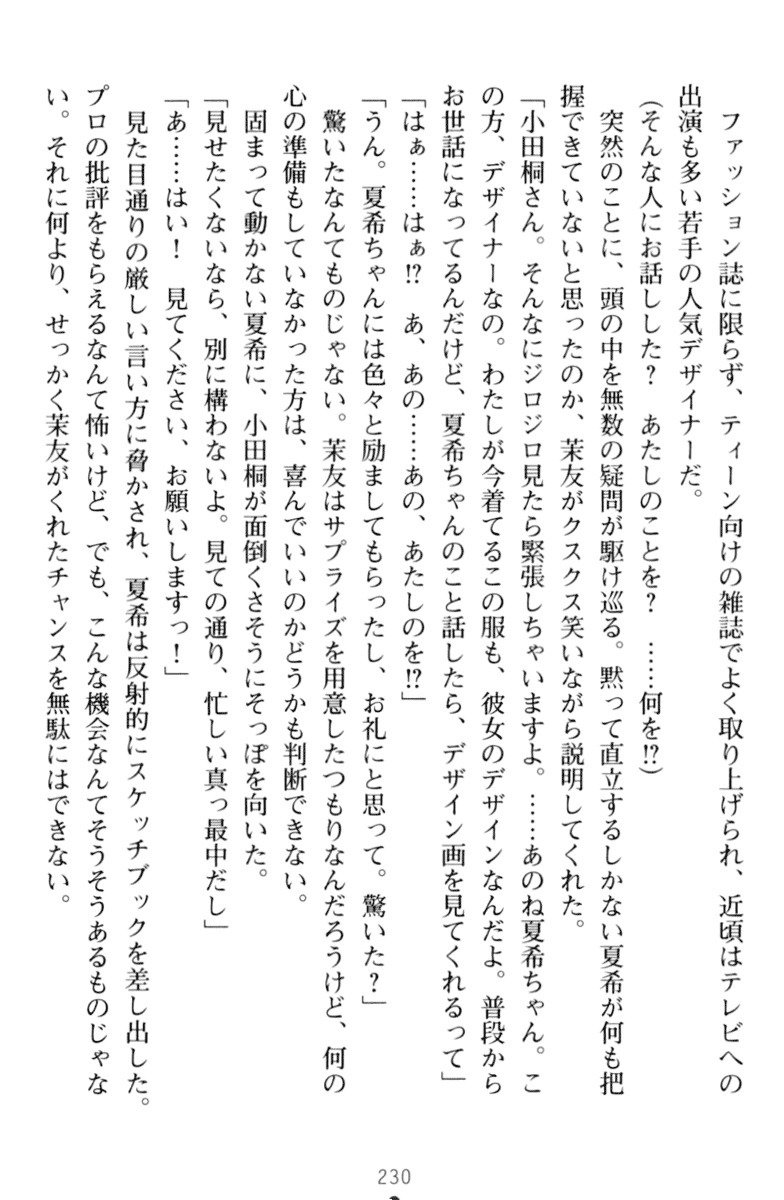 ファッション誌に限らず、ティーン向けの雑誌でよく取り上げられ、近頃はテレビへの
出演も多い若手の人気デザイナーだ。
(そんな人にお話しした？　あたしのことを？　……何を!?)
突然のことに、頭の中を無数の疑問が駆け巡る。黙って直立するしかない夏希が何も把
握できていないと思ったのか、茉友がクスクス笑いながら説明してくれた。
「小田桐さん。そんなにジロジロ見たら緊張しちゃいますよ。……あのね夏希ちゃん。こ
の方、デザイナーなの。わたしが今着てるこの服も、彼女のデザインなんだよ。普段から
お世話になってるんだけど、夏希ちゃんのこと話したら、デザイン画を見てくれるって」
「はぁ……はぁ!?　あ、あの……あの、あたしのを!?」
「うん。夏希ちゃんには色々と励ましてもらったし、お礼にと思って。驚いた？」
驚いたなんてものじゃない。茉友はサプライズを用意したつもりなんだろうけど、何の
心の準備もしていなかった方は、喜んでいいのかどうかも判断できない。
固まって動かない夏希に、小田桐が面倒くさそうにそっぽを向いた。
「見せたくないなら、別に構わないよ。見ての通り、忙しい真っ最中だし」
「あ……はい！　見てください、お願いしますっ！」
見た目通りの厳しい言い方に脅かされ、夏希は反射的にスケッチブックを差し出した。
プロの批評をもらえるなんて怖いけど、でも、こんな機会なんてそうそうあるものじゃな
い。それに何より、せっかく茉友がくれたチャンスを無駄にはできない。
230